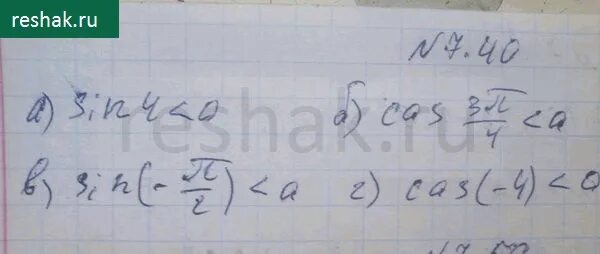 reshak.ru
N 7.40
а) sin 4 < 0 б) cos 3π/4 < 0
в) sin(-π/2) < 0 г) cos(-4) < 0
reshak.ru